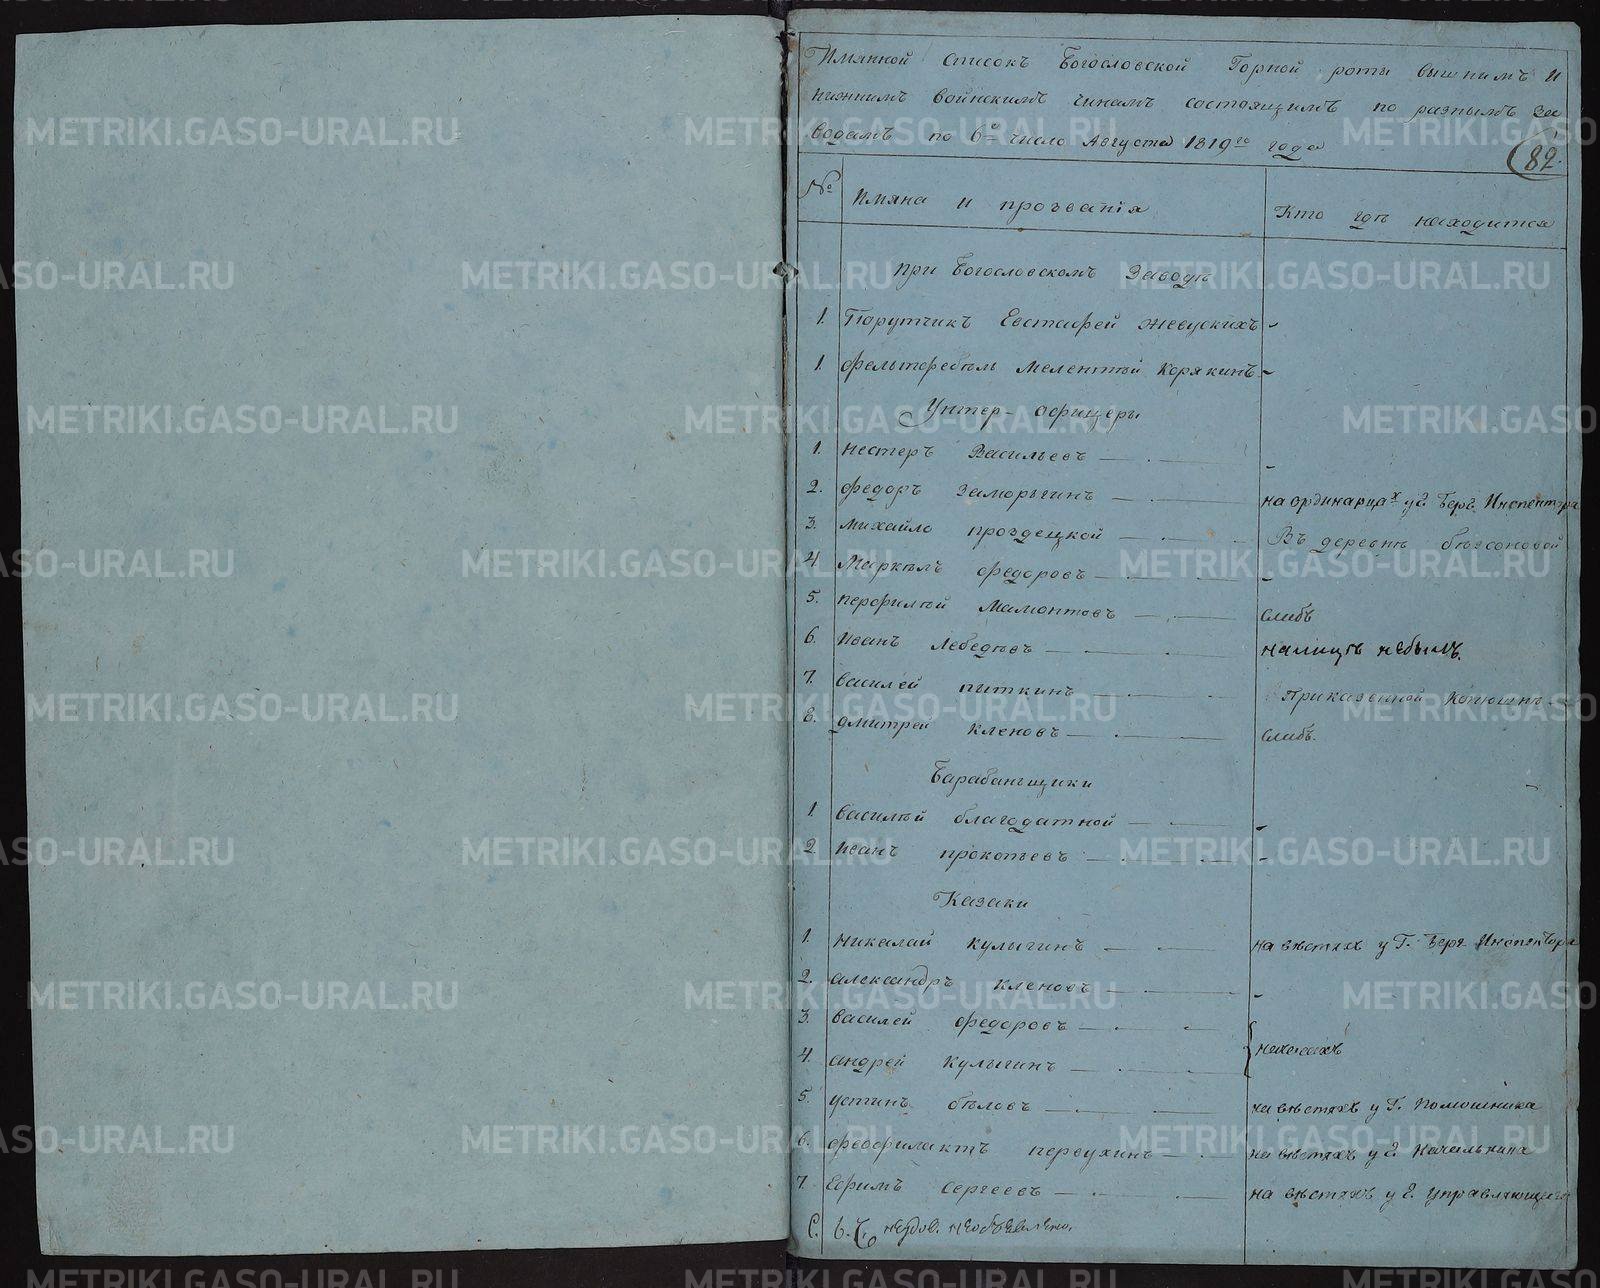 Имянной списокъ Богословской Горной роты вышнимъ и
нижнимъ воинскимъ чинамъ состоящимъ по разнымъ за
водамъ по 6е число Августа 1819го года
82.
№ Имяна и прозванія Кто гдѣ находится
при Богословскомъ Заводѣ
1. Порутчикъ Евстафей
1. фельтфебѣль Мелентѣй Корякинъ
Унтер-офицеры
1. Нестеръ Васильевъ
2. федоръ Заморыгинъ на ординарцах у г. Берг. Инспектора
3. Михайло проздецкой Въ деревнѣ бѣссоновой
4 Маркѣлъ федоровъ
5. перфилѣй Мамонтовъ слабъ
6. Иванъ Лебедѣвъ налицѣ небылъ.
7. василей пыткинъ Приказенной конюшнѣ
8. дмитрей кленовъ слабъ.
Барабаньщики
1. василѣй благодатной
2. Иванъ прокопьевъ
Казаки
1. николай кулыгинъ на вѣстяхъ у Г. Берг Инспектора
2. александръ кленовъ
3. василей федоровъ
4. андрей кулыгинъ
5. устинъ бѣловъ на вѣстяхъ у Г. Помошника
6. феофилактъ первухинъ на вѣстяхъ у г. Начальника
7. Ефимъ Сергеевъ на вѣстяхъ у г. управляющего
METRIKI.GASO-URAL.RU